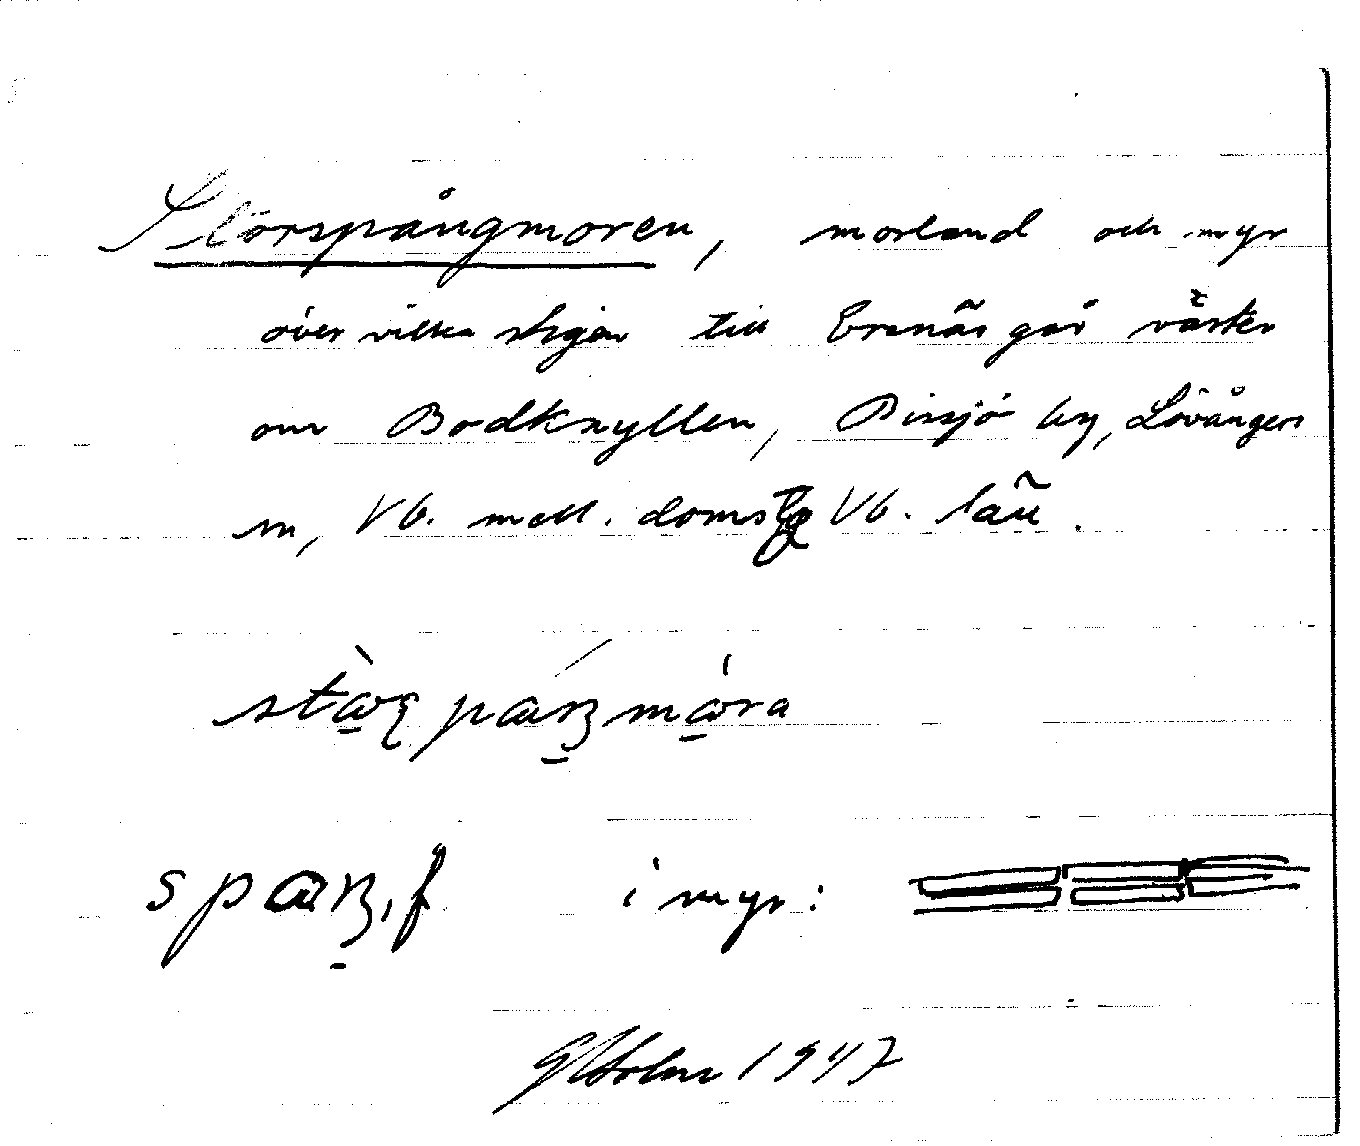 Storspångmoren, morland och myr
över vilka stigen till Granäs går väster
om Bodknyllen, Bissjö by, Lövångers
sn, Vb. mell. doms Vb. län.
spaŋ, f i myr:
GHolm 1947